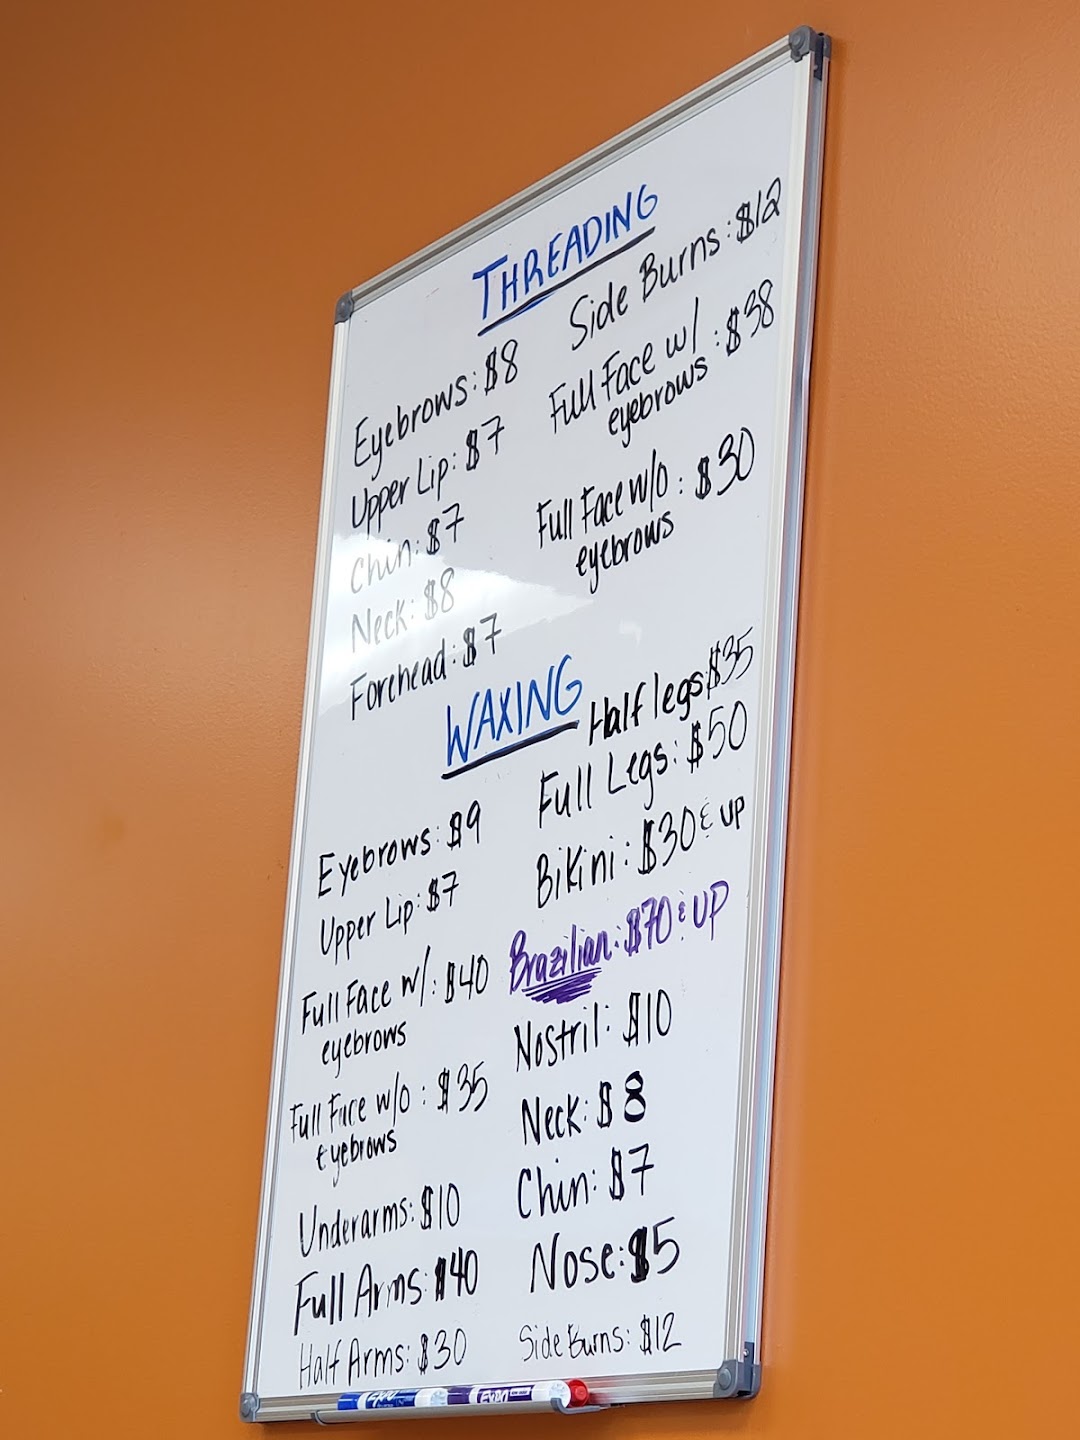 THREADING
Eyebrows: $8
Upper Lip: $7
Chin: $7
Neck: $8
Forehead: $7
Side Burns: $12
Full Face w/ : $38
eyebrows
Full Face w/o : $30
eyebrows
WAXING
Eyebrows: $9
Upper Lip: $7
Full Face w/: $40
eyebrows
Full Face w/o : $35
eyebrows
Underarms: $10
Full Arms: $40
Half Arms: $30
Half legs $35
Full Legs: $50
Bikini: $30 & UP
Brazilian: $70 & UP
Nostril: $10
Neck: $8
Chin: $7
Nose: $5
Side Burns: $12
EXPO
EXPO